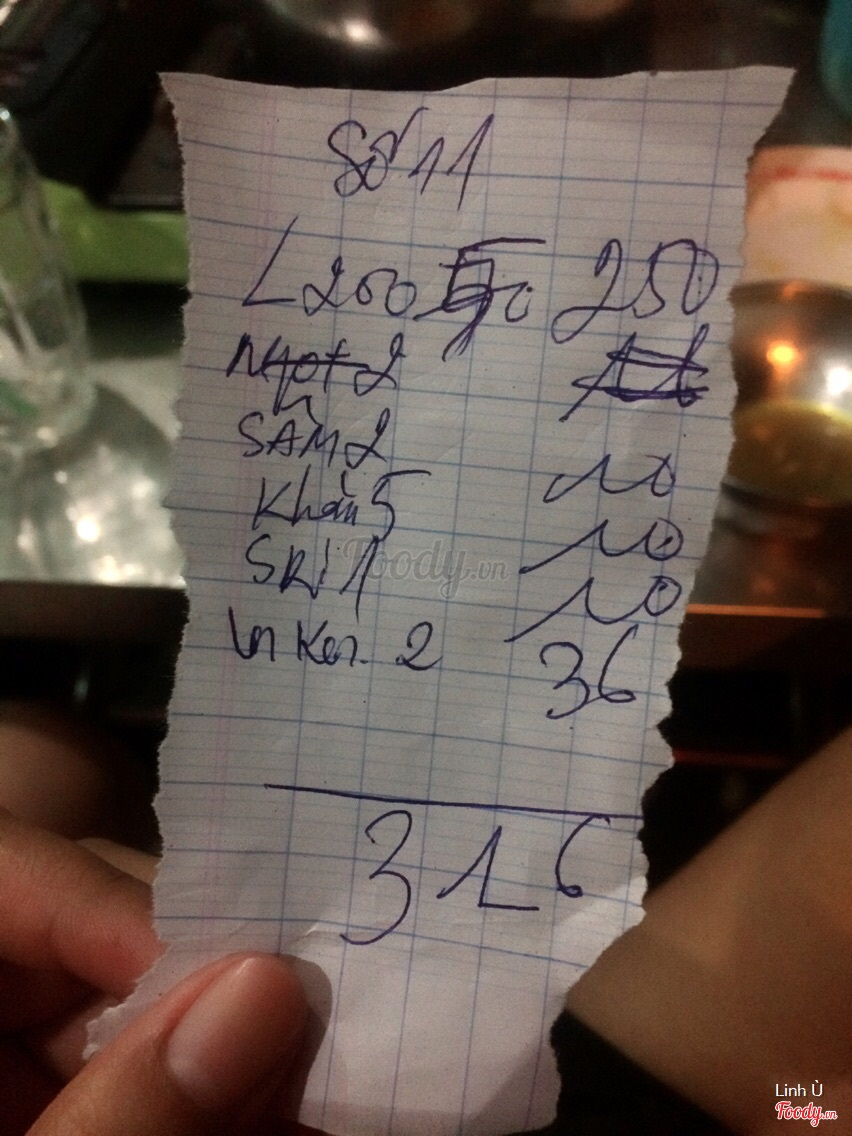 Số 11
L 200 50 250
Ngọt 2
SÂM 2 10
Khăn 5 10
SRi 1 10
Ken 2 36
316
Foody.vn
Linh Ù
Foody.vn